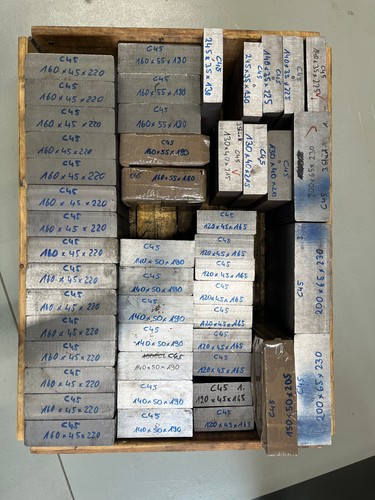 C45
160 x 45 x 220
C45
160 x 45 x 220
C45
160 x 45 x 220
C45
160 x 45 x 220
C45
160 x 45 x 220
C45
160 x 45 x 220
C45
160 x 45 x 220
C45
160 x 45 x 220
C45
160 x 45 x 220
C45
160 x 45 x 220
C45
160 x 45 x 220
C45
160 x 45 x 220
C45
160 x 45 x 220
C45
160 x 55 x 190
C45
160 x 55 x 190
C45
160 x 55 x 190
C45
160 x 55 x 190
160 x 55 x 190
C45
140 x 50 x 190
C45
140 x 50 x 190
C45
140 x 50 x 190
C45
140 x 50 x 190
C45
140 x 50 x 190
C45
140 x 50 x 190
C45
140 x 50 x 190
C45
120 x 45 x 165
C45
120 x 45 x 165
C45
120 x 45 x 165
C45
120 x 45 x 165
C45
120 x 45 x 165
C45
120 x 45 x 165
C45
120 x 45 x 165
C45 1.
120 x 45 x 165
C45
120 x 45 x 165
C45
245 x 35 x 130
C45
245 x 35 x 130
C45
140 x 35 x 225
C45
140 x 35 x 225
C45
C45
130 x 40 x 205
C45
130 x 40 x 205
C45
130 x 40 x 205
C45
200 x 65 x 230
C45
200 x 65 x 230
C45
200 x 65 x 230
C45
150 x 50 x 205